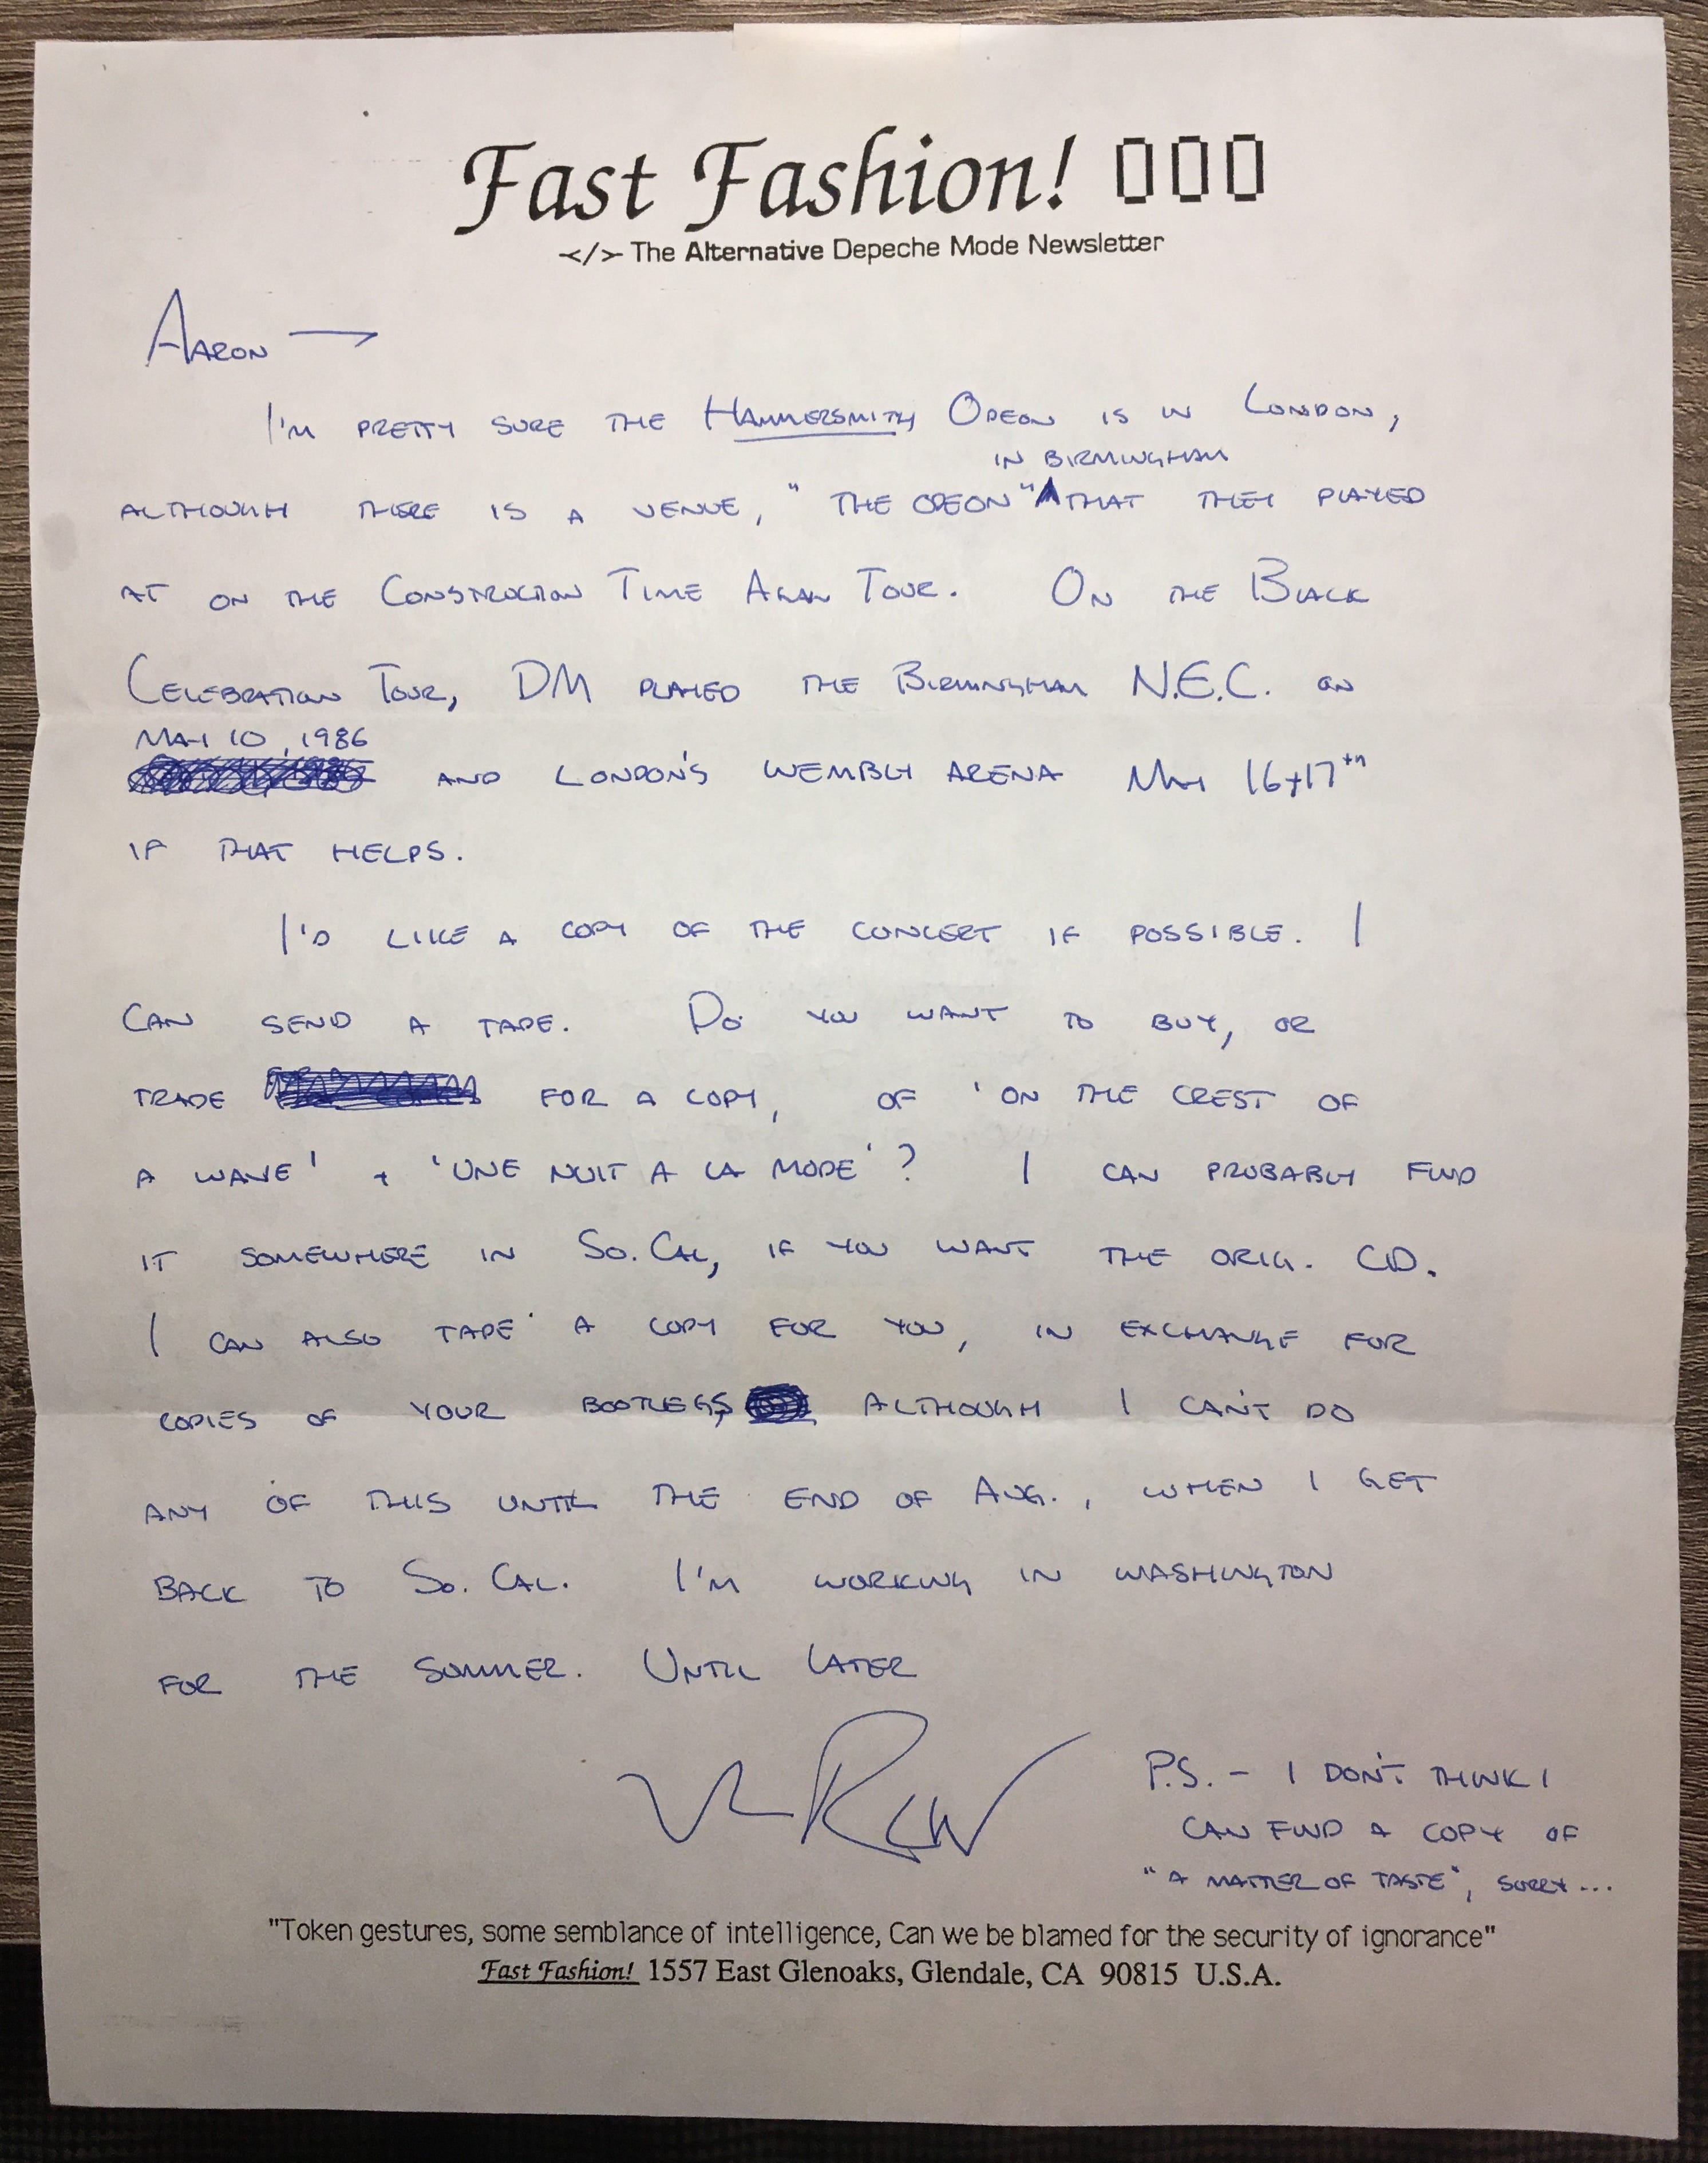 Fast Fashion! ▯▯▯
-</>- The Alternative Depeche Mode Newsletter
AARON —
I'M PRETTY SURE THE HAMMERSMITH ODEON IS IN LONDON,
IN BIRMINGHAM
ALTHOUGH THERE IS A VENUE, "THE ODEON" THAT THEY PLAYED
AT ON THE CONSTRUCTION TIME AGAIN TOUR. ON THE BLACK
CELEBRATION TOUR, DM PLAYED THE BIRMINGHAM N.E.C. ON
MAY 10, 1986
AND LONDON'S WEMBLY ARENA MAY 16+17TH
IF THAT HELPS.
I'D LIKE A COPY OF THE CONCERT IF POSSIBLE. I
CAN SEND A TAPE. DO YOU WANT TO BUY, OR
TRADE FOR A COPY, OF 'ON THE CREST OF
A WAVE' + 'UNE NUIT A LA MODE'? I CAN PROBABLY FIND
IT SOMEWHERE IN SO. CAL, IF YOU WANT THE ORIG. CD.
I CAN ALSO TAPE A COPY FOR YOU, IN EXCHANGE FOR
COPIES OF YOUR BOOTLEGS, ALTHOUGH I CAN'T DO
ANY OF THIS UNTIL THE END OF AUG., WHEN I GET
BACK TO SO. CAL. I'M WORKING IN WASHINGTON
FOR THE SUMMER. UNTIL LATER
P.S. - I DON'T THINK I
CAN FIND A COPY OF
"A MATTER OF TASTE", SORRY...
"Token gestures, some semblance of intelligence, Can we be blamed for the security of ignorance"
Fast Fashion! 1557 East Glenoaks, Glendale, CA 90815 U.S.A.